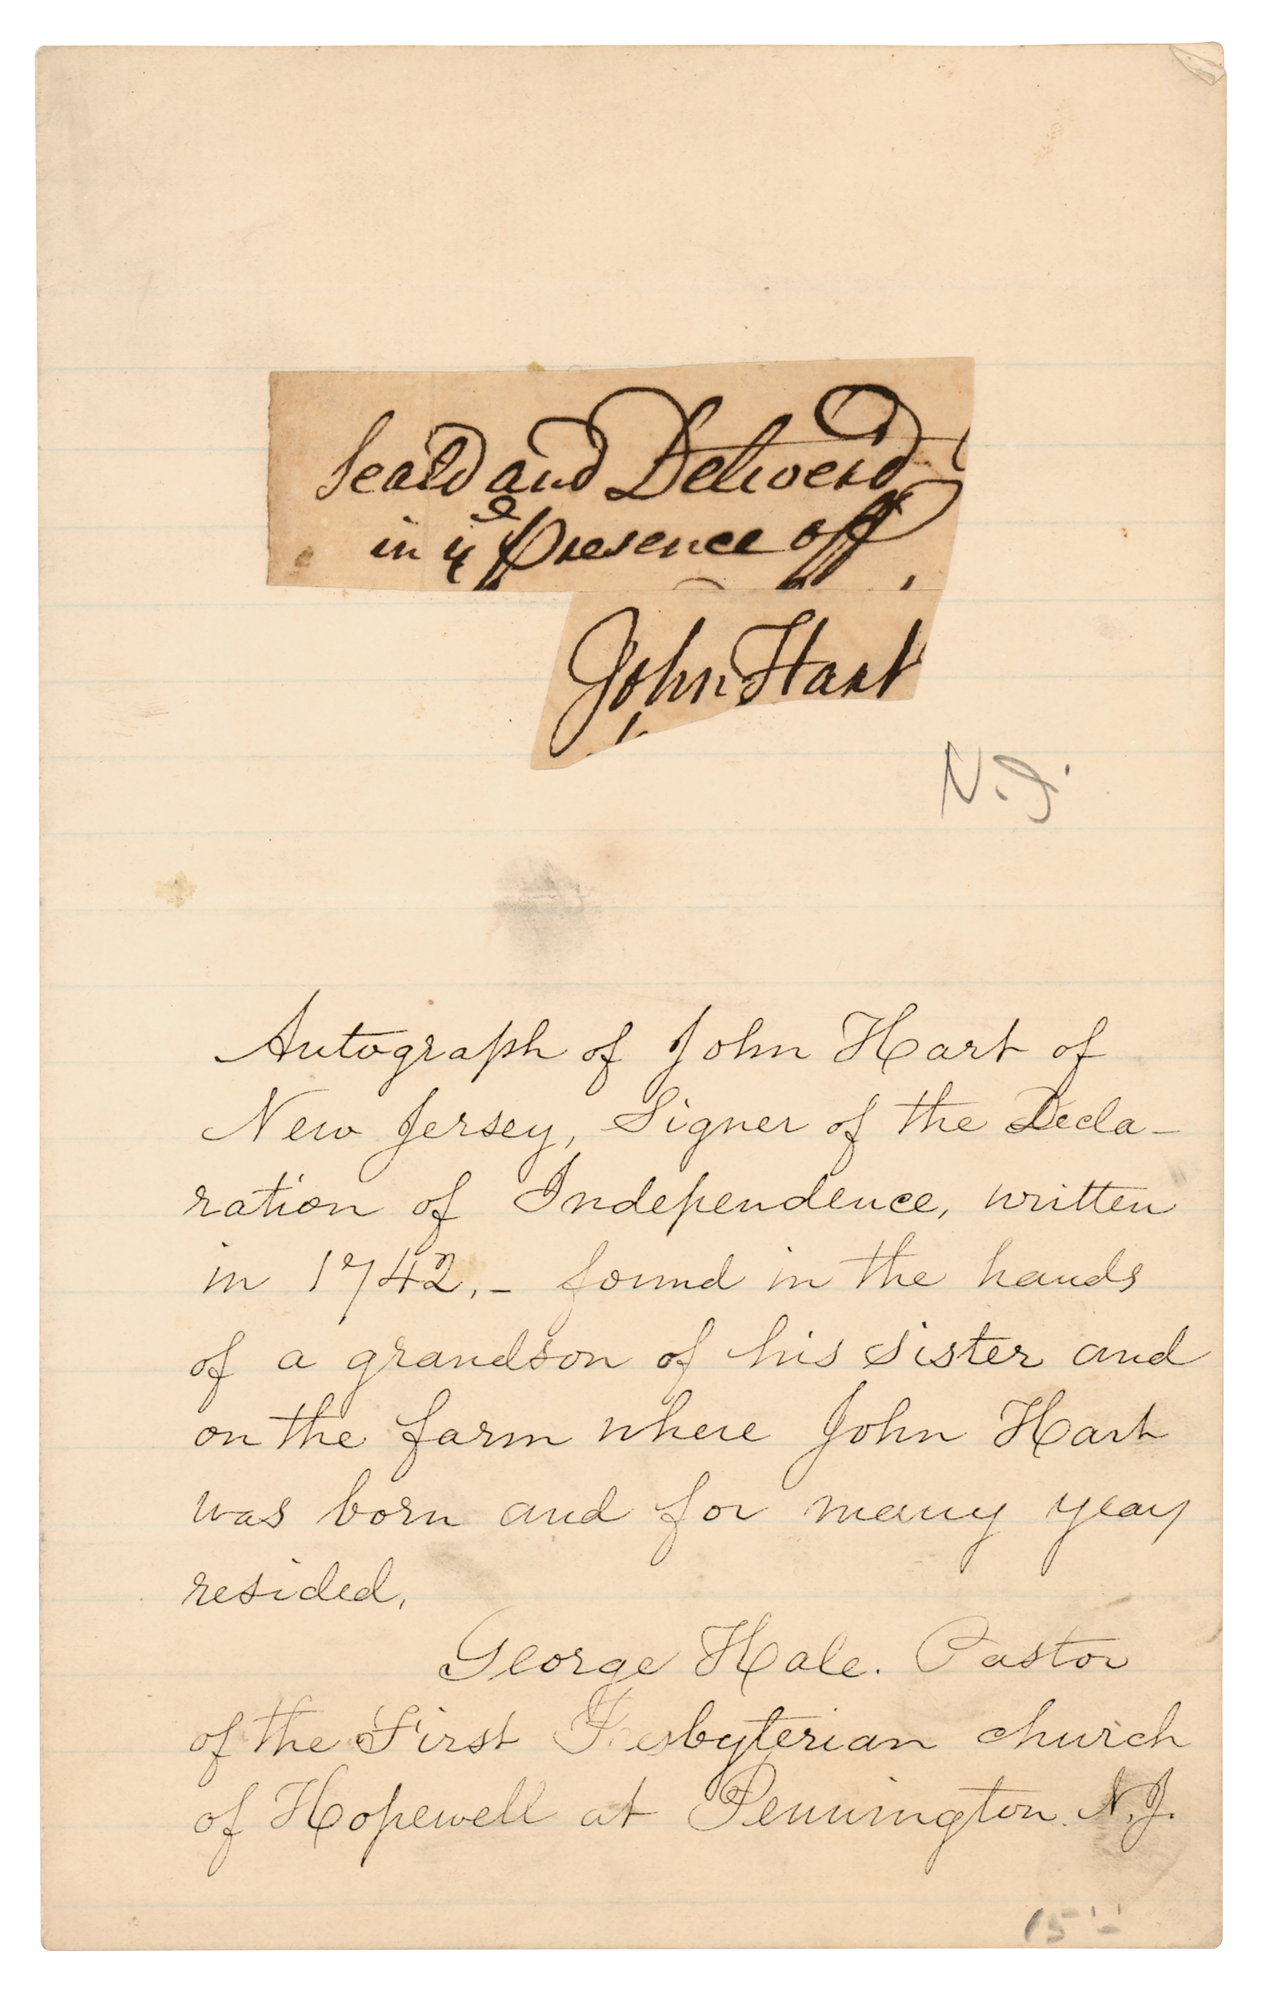 Seald and Deliverd
in yͤ presence off
John Hart
N.J.
Autograph of John Hart of
New Jersey, Signer of the Decla-
ration of Independence, written
in 1742,- found in the hands
of a grandson of his sister and
on the farm where John Hart
was born and for many years
resided.
George Hale. Pastor
of the First Presbyterian church
of Hopewell at Pennington N.J.
15